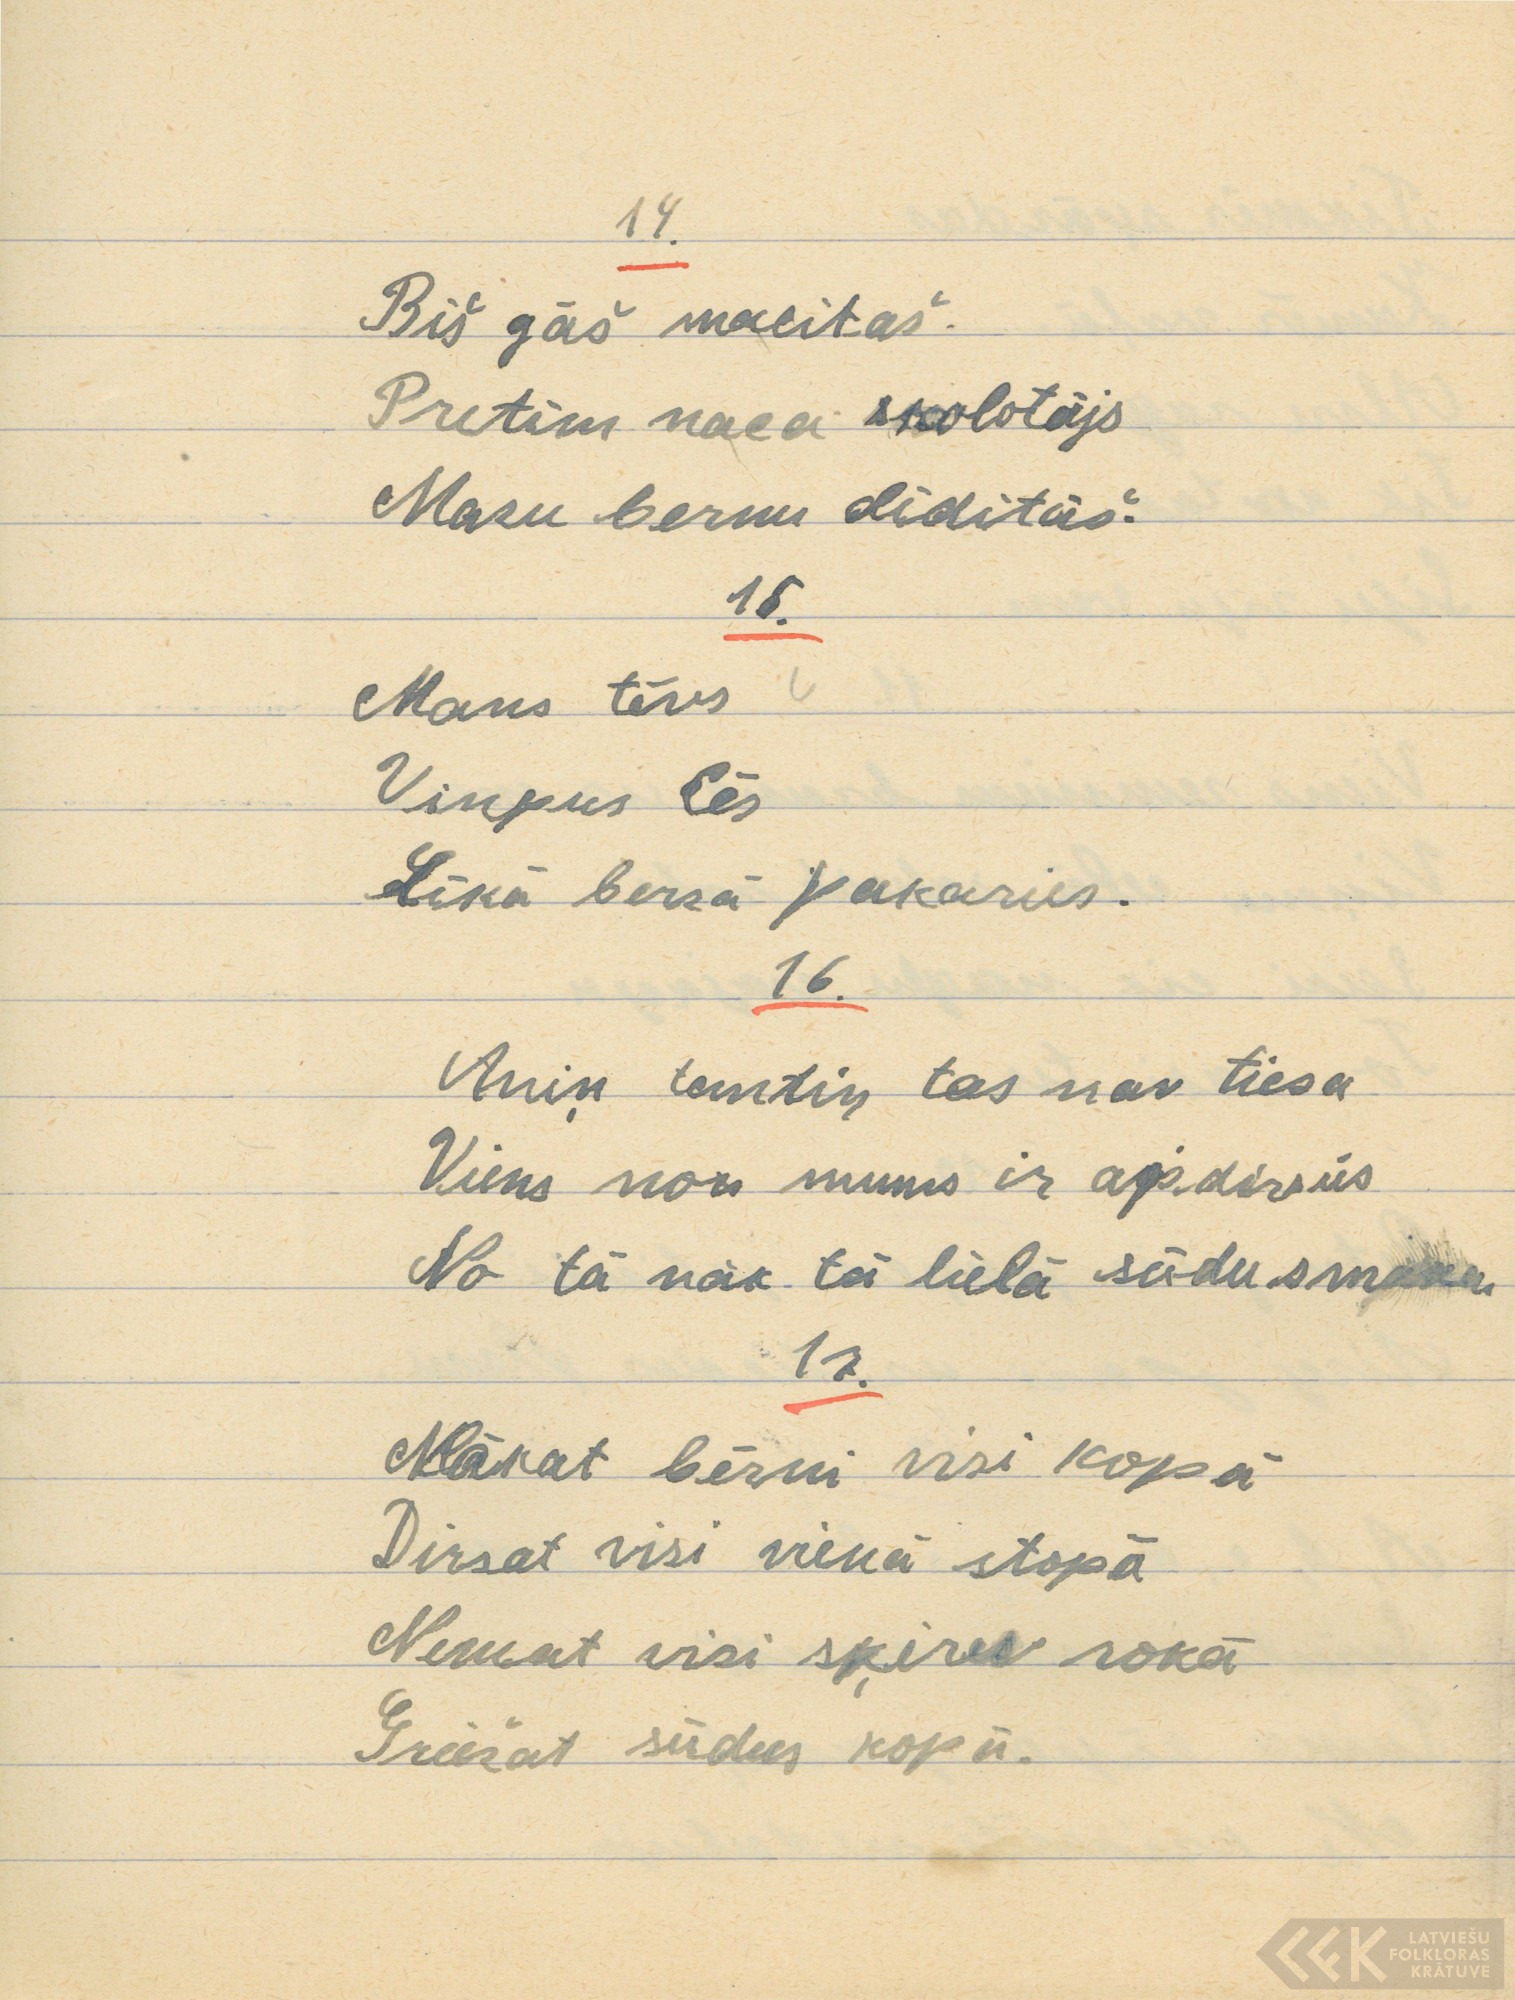 14.
Biš gāš macitaš.
Pretim naca skolotājs
Masu bernu diditāš.
15.
Mans tēvs
Vinpus Cēs
Likā berzā pakaries.
16.
Aniņ tantiņ tas nav tiesa
Viens non mums ir apdirsis
No tā nāk tā lielā sūdu smaka.
17.
Nākat bērni visi kopā
Dirsat visi vienā stopā
Nemat visi sķirev rokā
Griežat sūdus kopā.
LATVIEŠU
FOLKLORAS
KRĀTUVE